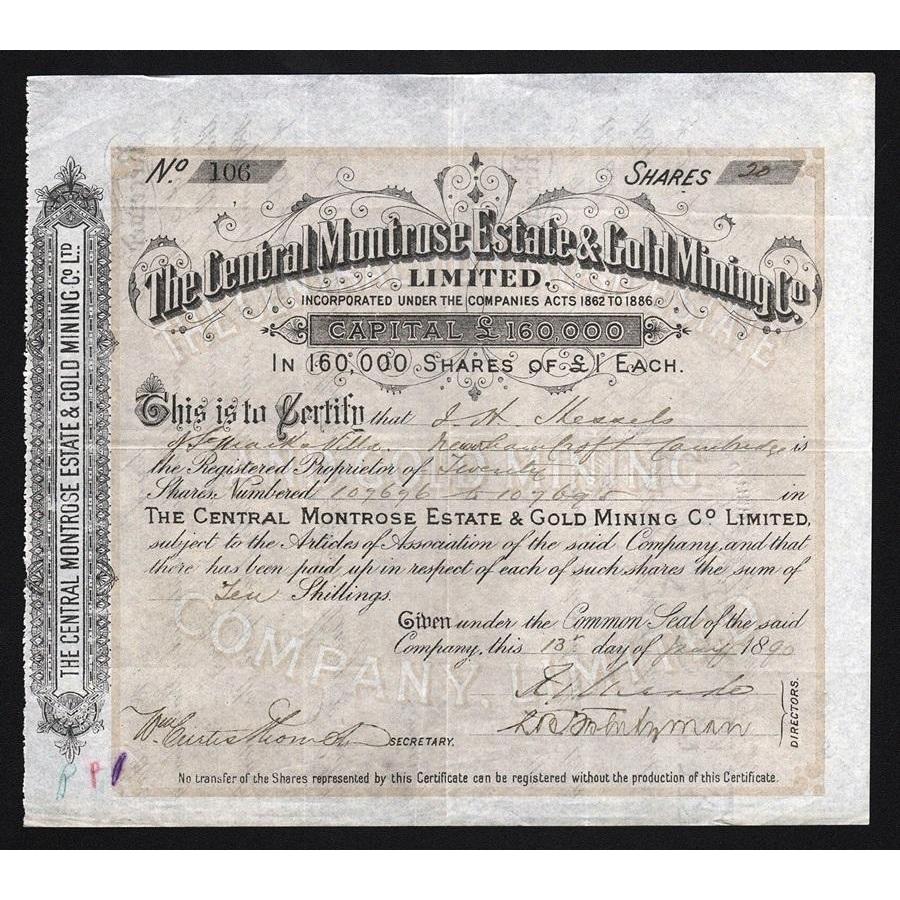 No. 106
SHARES 20
The Central Montrose Estate & Gold Mining Co
LIMITED.
INCORPORATED UNDER THE COMPANIES ACTS 1862 TO 1886
CAPITAL £160,000
IN 160,000 SHARES OF £1 EACH.
This is to Certify that J H Messels
of Villa. Croft Cambridge is
the Registered Proprietor of Twenty
Shares, Numbered 107676 to 107695 in
THE CENTRAL MONTROSE ESTATE & GOLD MINING Co LIMITED,
subject to the Articles of Association of the said Company, and that
there has been paid up in respect of each of such shares the sum of
Ten Shillings.
Given under the Common Seal of the said
Company, this 13th day of Jany 1890
DIRECTORS.
Wm Curtis SECRETARY.
No transfer of the Shares represented by this Certificate can be registered without the production of this Certificate.
THE CENTRAL MONTROSE ESTATE & GOLD MINING Co LTD
AND GOLD MINING
COMPANY, LIMITED